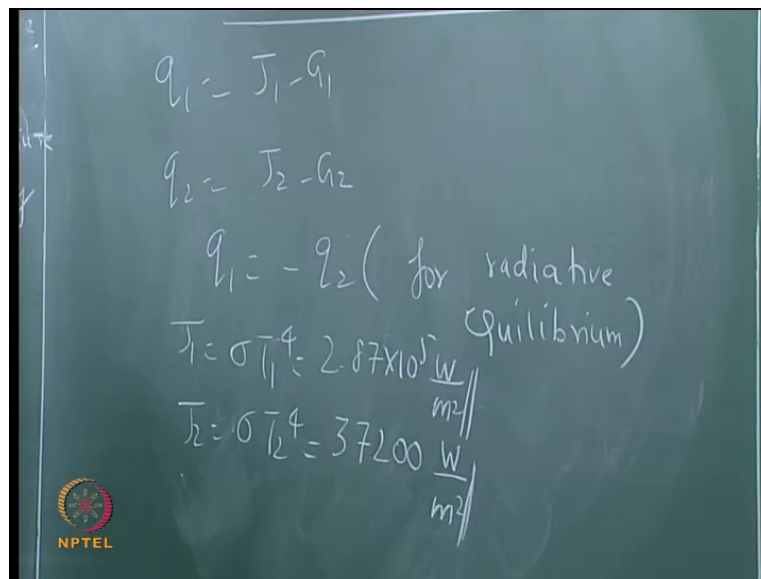 q₁ = J₁ - G₁
q₂ = J₂ - G₂
q₁ = - q₂ ( for radiative
equilibrium)
J₁ = σT₁⁴ = 2.87×10⁵ W/m²
J₂ = σT₂⁴ = 37200 W/m²
NPTEL